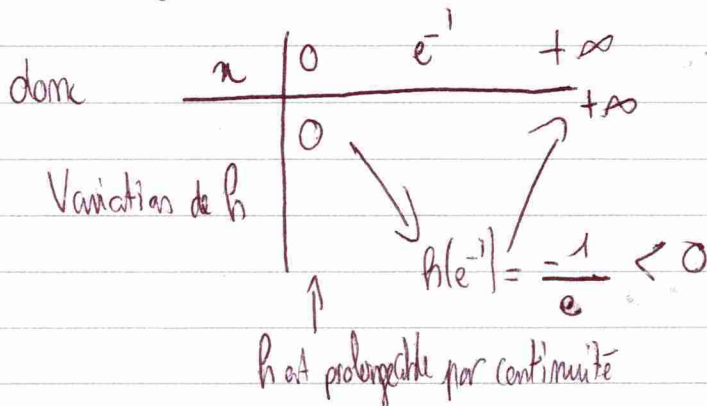 donc
x 0 e⁻¹ +∞
+∞
0
Variations de h
h(e⁻¹) = -1/e < 0
h est prolongeable par continuité